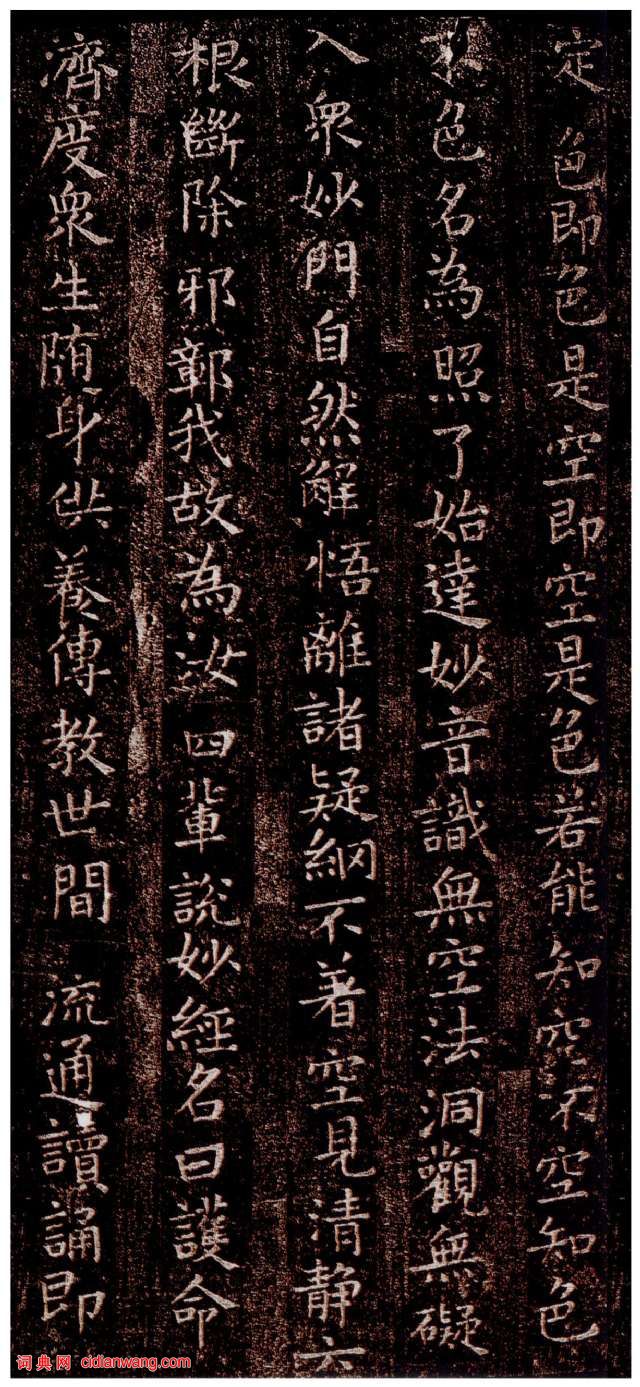 定色即色是空即空是色若能知空不空知色
不色名為照了始達妙音識無空法洞觀無礙
入衆妙門自然解悟離諸疑網不著空見清静六
根斷除邪鄣我故為汝四輩說妙經名曰護命
濟度衆生随身供養傳教世間流通讀誦即
词典网 cidianwang.com